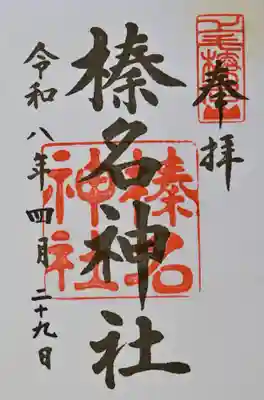 奉拝
榛名神社
榛名
神社
令和八年四月二十九日